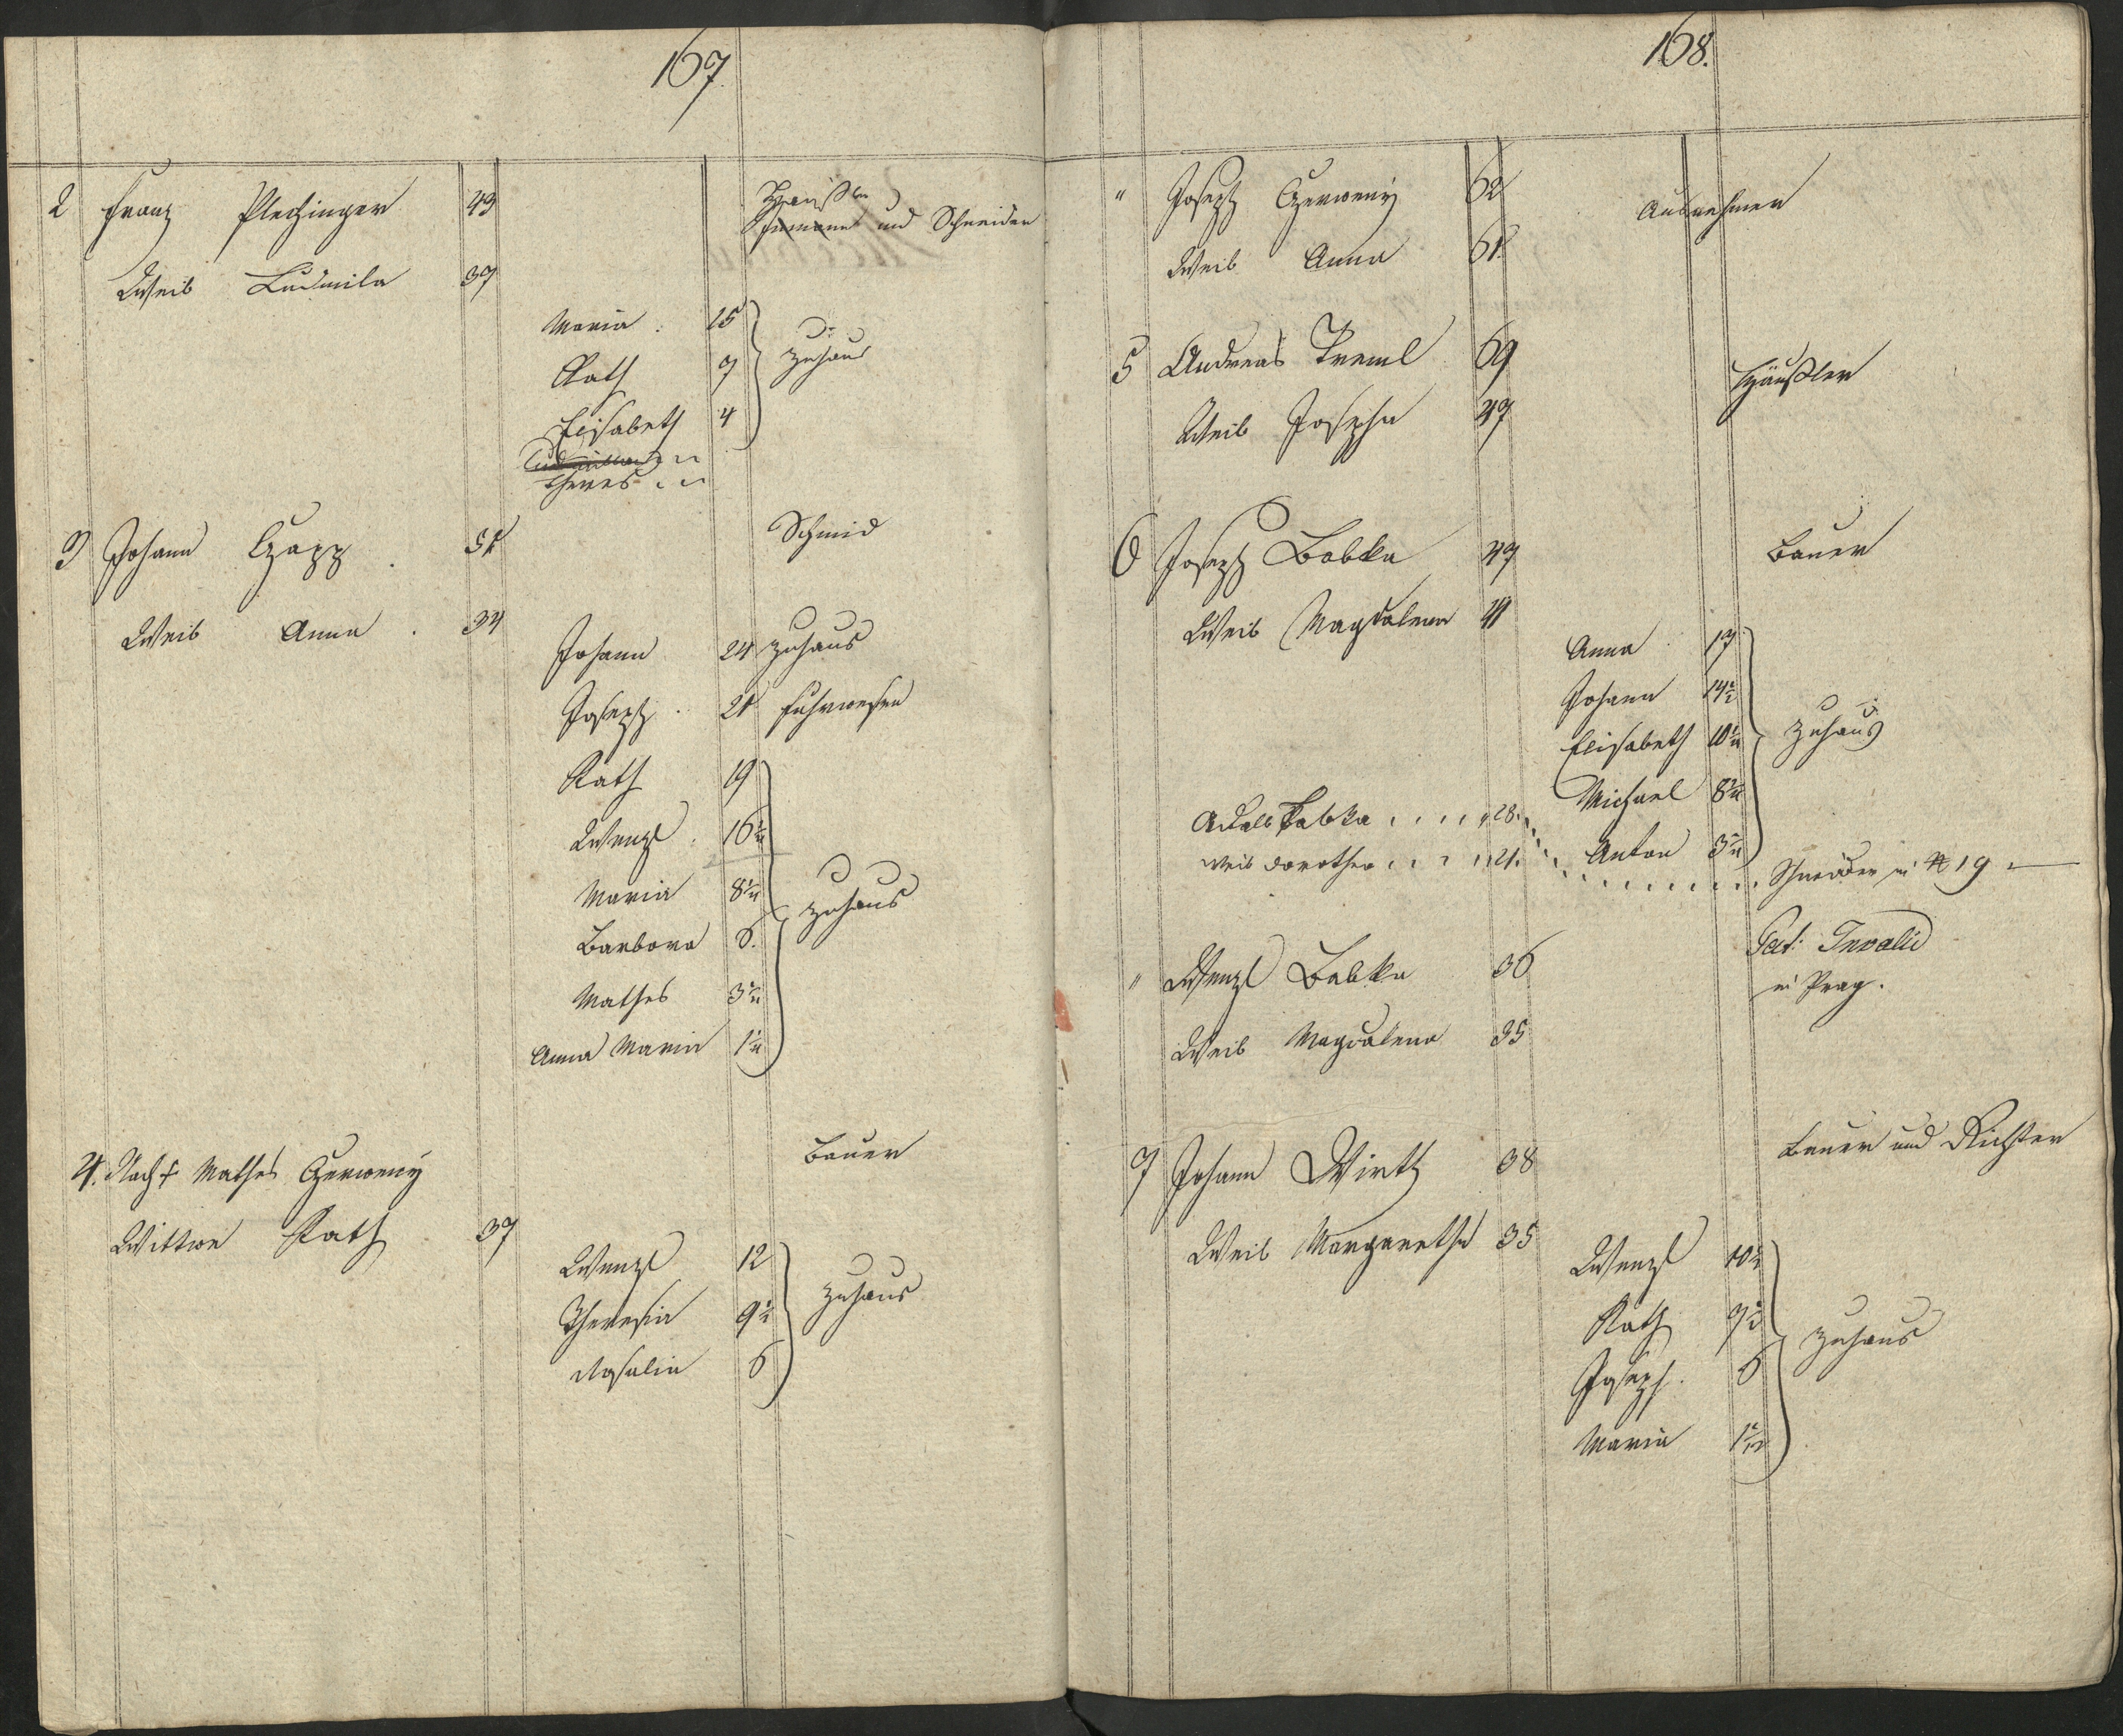 167
2 Franz Plechinger 43 Häußler
Inmann und Schneider
Weib Ludmila 37
Maria 15
Kath 7 zuhaus
Elisabeth 4
Theres
3 Johann Czapp 51 Schmid
Weib Anna 34
Johann 24 zuhaus
Joseph 21 Fuhrwesen
Kath 19
Wenzl 16½
Maria 8½ zuhaus
Barbara 6
Mathes 3½
Anna Maria 1½
4. Nach † Mathes Czerweny Bauer
Wittwe Kath 37
Wenzl 12
Theresia 9½ zuhaus
Rosalia 6
168.
" Joseph Czerweny 62 Ausnehmer
Weib Anna 61
5 Andreas Treml 69 Häußler
Weib Josepha 47
6 Joseph Babka 47 Bauer
Weib Magdalena 41
Anna 17
Johann 14½
Elisabeth 10½ zuhaus
Michael 8½
Adalb Babka 28.
Anton 3½
Weib Dorothea 21. Schneider in N 19
" Wenzl Babka 36 Pat: Invalid
in Prag.
Weib Magdalena 35
7 Johann Wirth 38 Bauer und Richter
Weib Margaretha 35
Wenzl 10½
Kath 7½ zuhaus
Joseph 6
Maria 1½